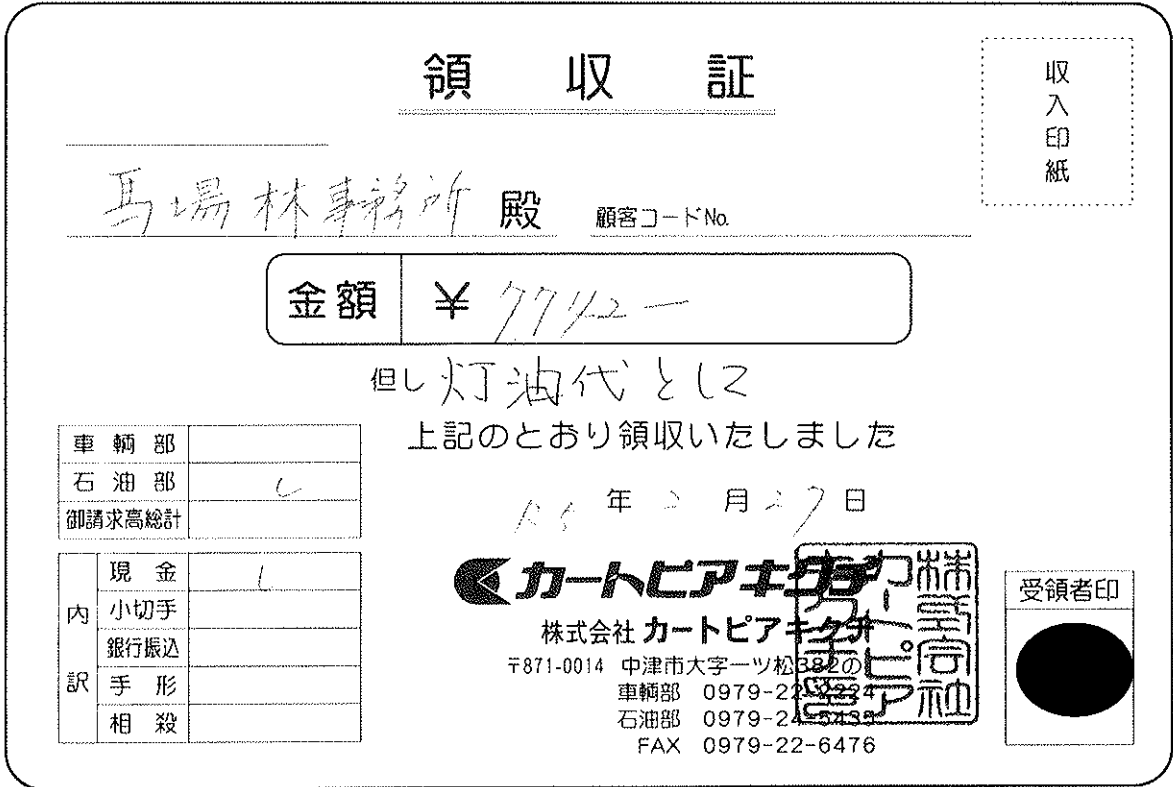 領収証
収入印紙
馬場林事務所 殿 顧客コードNo.
金額 ¥ 7742-
但し 灯油代として
上記のとおり領収いたしました
年 2 月 27 日
車輌部
石油部 レ
御請求高総計
内訳
現金 レ
小切手
銀行振込
手形
相殺
カートピアキクチ
株式会社 カートピアキクチ
〒871-0014 中津市大字一ツ松382の
車輌部 0979-22-2224
石油部 0979-24-5439
FAX 0979-22-6476
受領者印